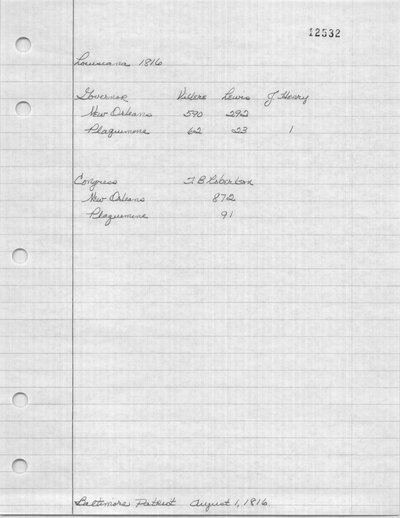 12532
Louisiana 1816
Governor Villere Lewis J Henry
New Orleans 590 292
Plaquemine 62 23 1
Congress T B Robertson
New Orleans 872
Plaquemine 91
Baltimore Patriot August 1, 1816.